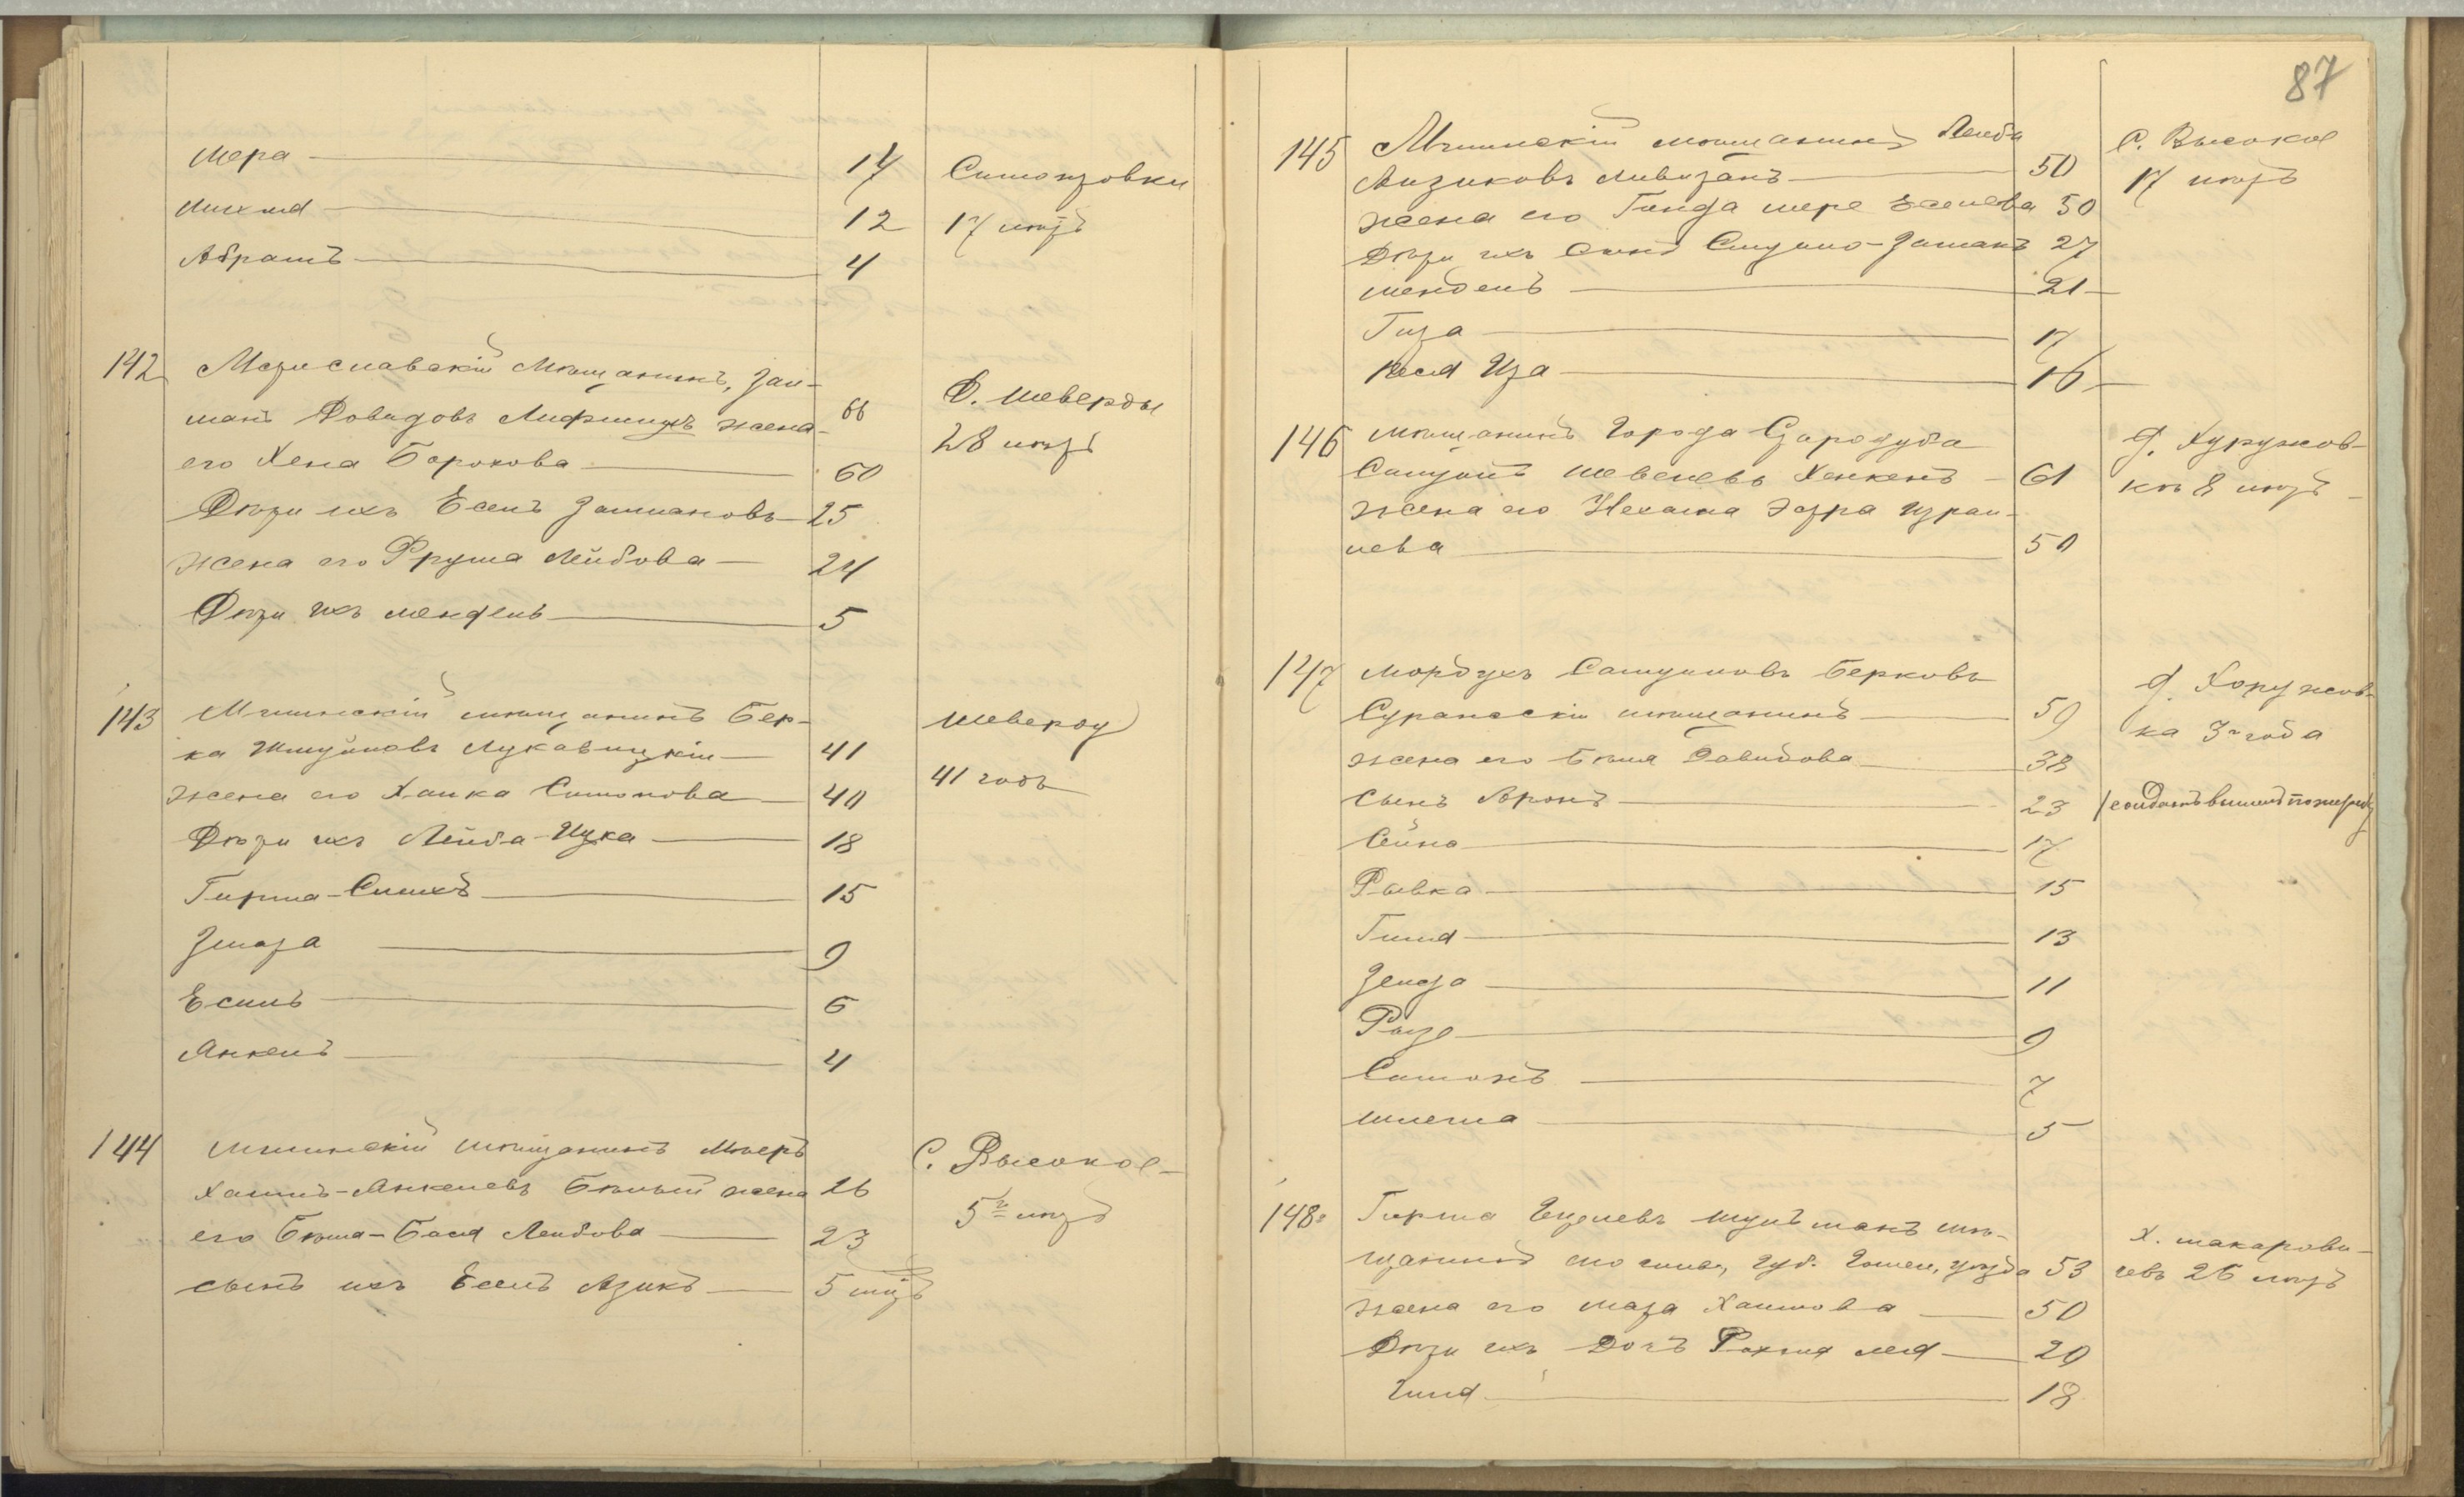 Мера 14 Симоновки
Михля 12 17 лѣтъ
Абрамъ 4
142 Мстиславскій Мѣщанинъ, Зал-
манъ Довидовъ Лифшицъ жена 66 Д. Шеверды
его Хена Борохова 60 28 лѣтъ
Дѣти ихъ Есель Залмановъ 25
жена его Фрума Лейбова 24
Дѣти ихъ Мендель 5
143 Мглинскій мѣщанинъ Бер-
ка Шмуйловъ Лукавицкій 41 Шеверду
жена его Хайка Симонова 40 41 годъ
Дѣти ихъ Лейба-Ицка 18
Гирша-Симхъ 15
Злата 9
Есиль 6
Янкель 4
144 Мглинскій мѣщанинъ Мѣеръ
Хаимъ-Янкелевъ Бѣлый жена 26 С. Высокое
его Бѣша-Бася Лейбова 23 5 лѣтъ
сынъ ихъ Есель Азикъ 5
87
145 Мглинскій мѣщанинъ Лейба С. Высокое
Айзиковъ 50 17 лѣтъ
жена его Гинда Мере Еселева 50
Дѣти ихъ сынъ Смуило-Залманъ 27
Мендель 21
Гита 17
Песя Ита 16
146 мѣщанинъ Города Стародуба
Самуилъ Шевелевъ Хенкенъ 61 д. Хуружов-
жена его Нехама Эстра Израи- кѣ 8 лѣтъ
лева 50
147 Мордухъ Самуиловъ Берковъ д. Хоружов-
Суражскій мѣщанинъ 59 ка 3 года
жена его Бѣля Давидова 38
Сынъ Аронъ 23
Сейна 17
Рывка 15
Гиля 13
Зелда 11
Рыся 9
Симонъ 7
Шлема 5
148 Гирша Ицелевъ Шульманъ мѣ-
щанинъ Могилев, губ. Гомел, уѣзда 53 х. Макарови-
жена его Мата Хаимова 50 чевъ 26 лѣтъ
Дѣти ихъ Дочь Рахиля Лея 20
Гиля 18